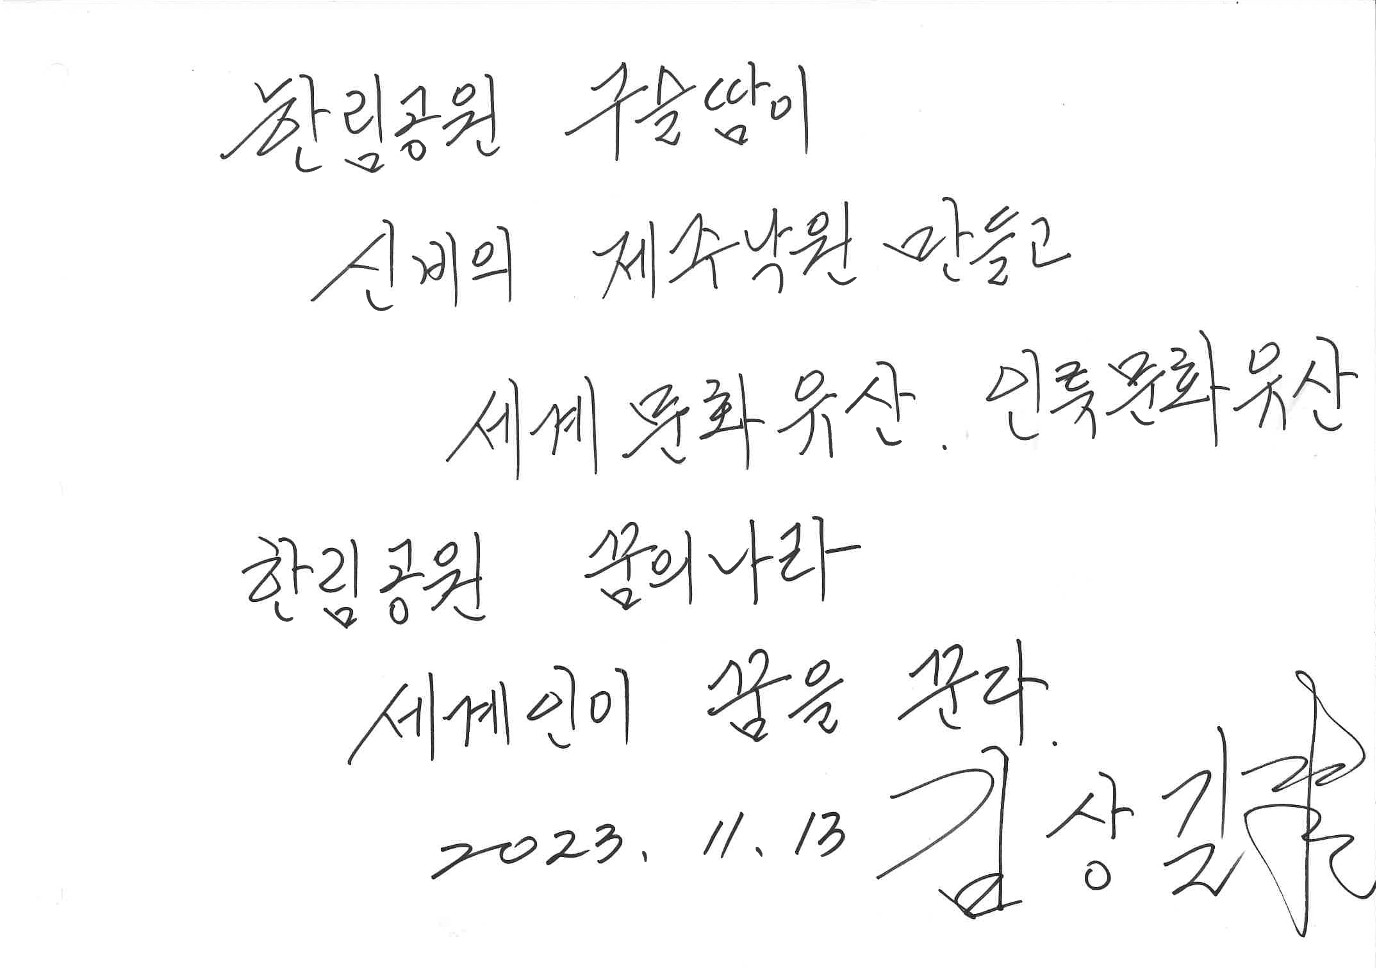 한림공원 구슬땀이
신비의 제주낙원 만들고
세계문화유산. 인류문화유산
한림공원 꿈의나라
세계인이 꿈을 꾼다.
2023. 11. 13 김상길